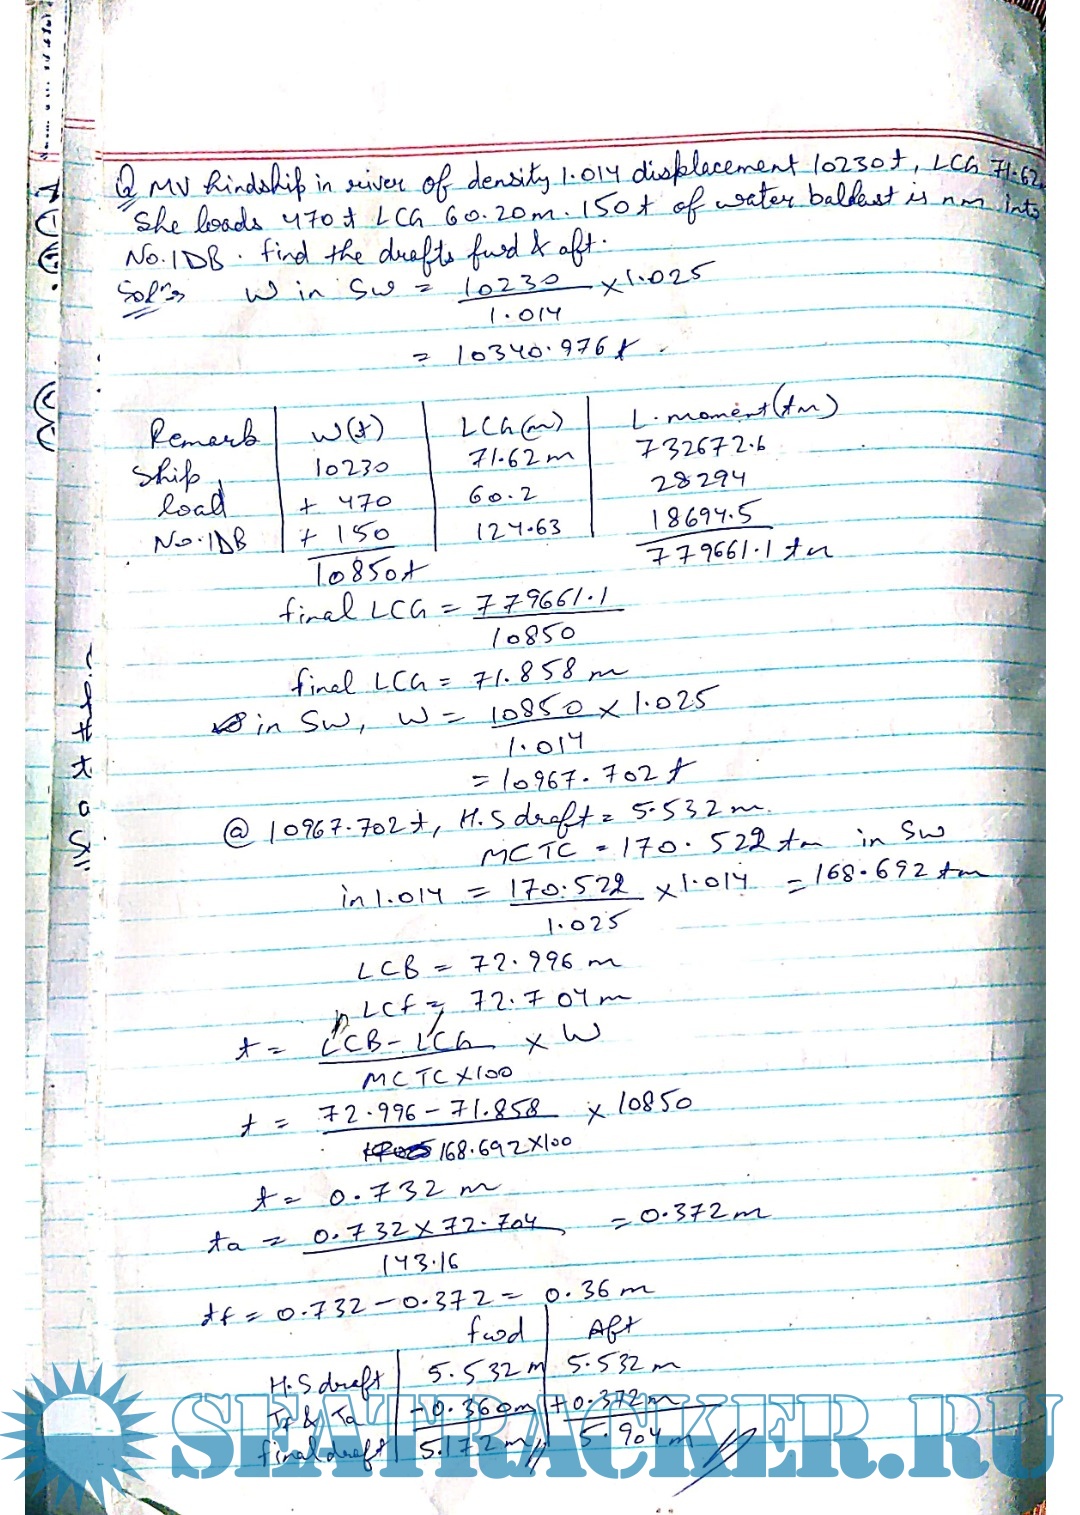 Q MV Hindship in river of density 1.014 displacement 10230t, LCG 71.62
She loads 470t LCG 60.20m. 150t of water ballast is run into
No.1DB. find the drafts fwd & aft.
Solⁿ⇒ W in SW = 10230 × 1.025
1.014
= 10340.976 t
Remark W(t) LCG(m) L.moment(tm)
Ship 10230 71.62m 732672.6
load + 470 60.2 28294
No.1DB + 150 124.63 18694.5
10850t 779661.1 tm
final LCG = 779661.1
10850
final LCG = 71.858 m
in SW, W = 10850 × 1.025
1.014
= 10967.702 t
@ 10967.702t, H.S draft = 5.532 m.
MCTC = 170.522 tm in SW
in 1.014 = 170.522 × 1.014 = 168.692 tm
1.025
LCB = 72.996 m
LCf = 72.704 m
t = LCB - LCG × W
MCTC × 100
t = 72.996 - 71.858 × 10850
168.692 × 100
t = 0.732 m
ta = 0.732 × 72.704 = 0.372 m
143.16
tf = 0.732 - 0.372 = 0.36 m
fwd Aft
H.S draft 5.532 m 5.532 m
Tf & Ta - 0.360m + 0.372m
final draft 5.172 m 5.904 m
SEATRACKER.RU